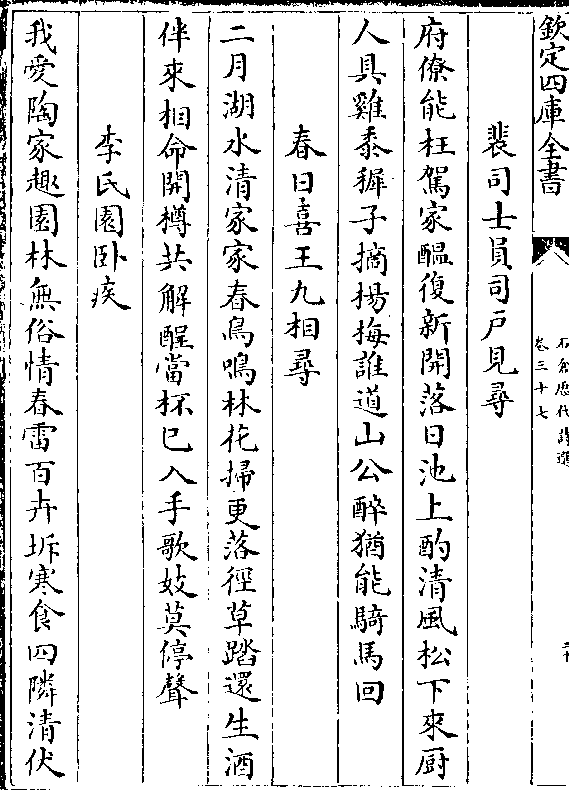 欽定四庫全書
石倉歷代詩選
卷三十七
裴司士員司户見尋
府僚能枉駕家醖復新開落日池上酌清風松下來厨
人具雞黍穉子摘楊梅誰道山公醉猶能騎馬回
春日喜王九相尋
二月湖水清家家春鳥鳴林花掃更落徑草踏還生酒
伴來相命開樽共解酲當杯已入手歌妓莫停聲
李氏園卧疾
我愛陶家趣園林無俗情春雷百卉坼寒食四隣清伏